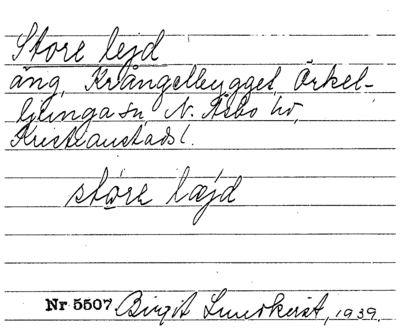 Store lejd
äng, Krångelbygget, Örkel-
ljunga sn, N. Åsbo hd,
Kristianstads l.
störe læjd
Nr 5507. Birgit Lundkvist, 1939.